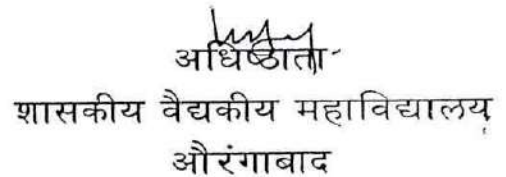 अधिष्ठाता
शासकीय वैद्यकीय महाविद्यालय,
औरंगाबाद